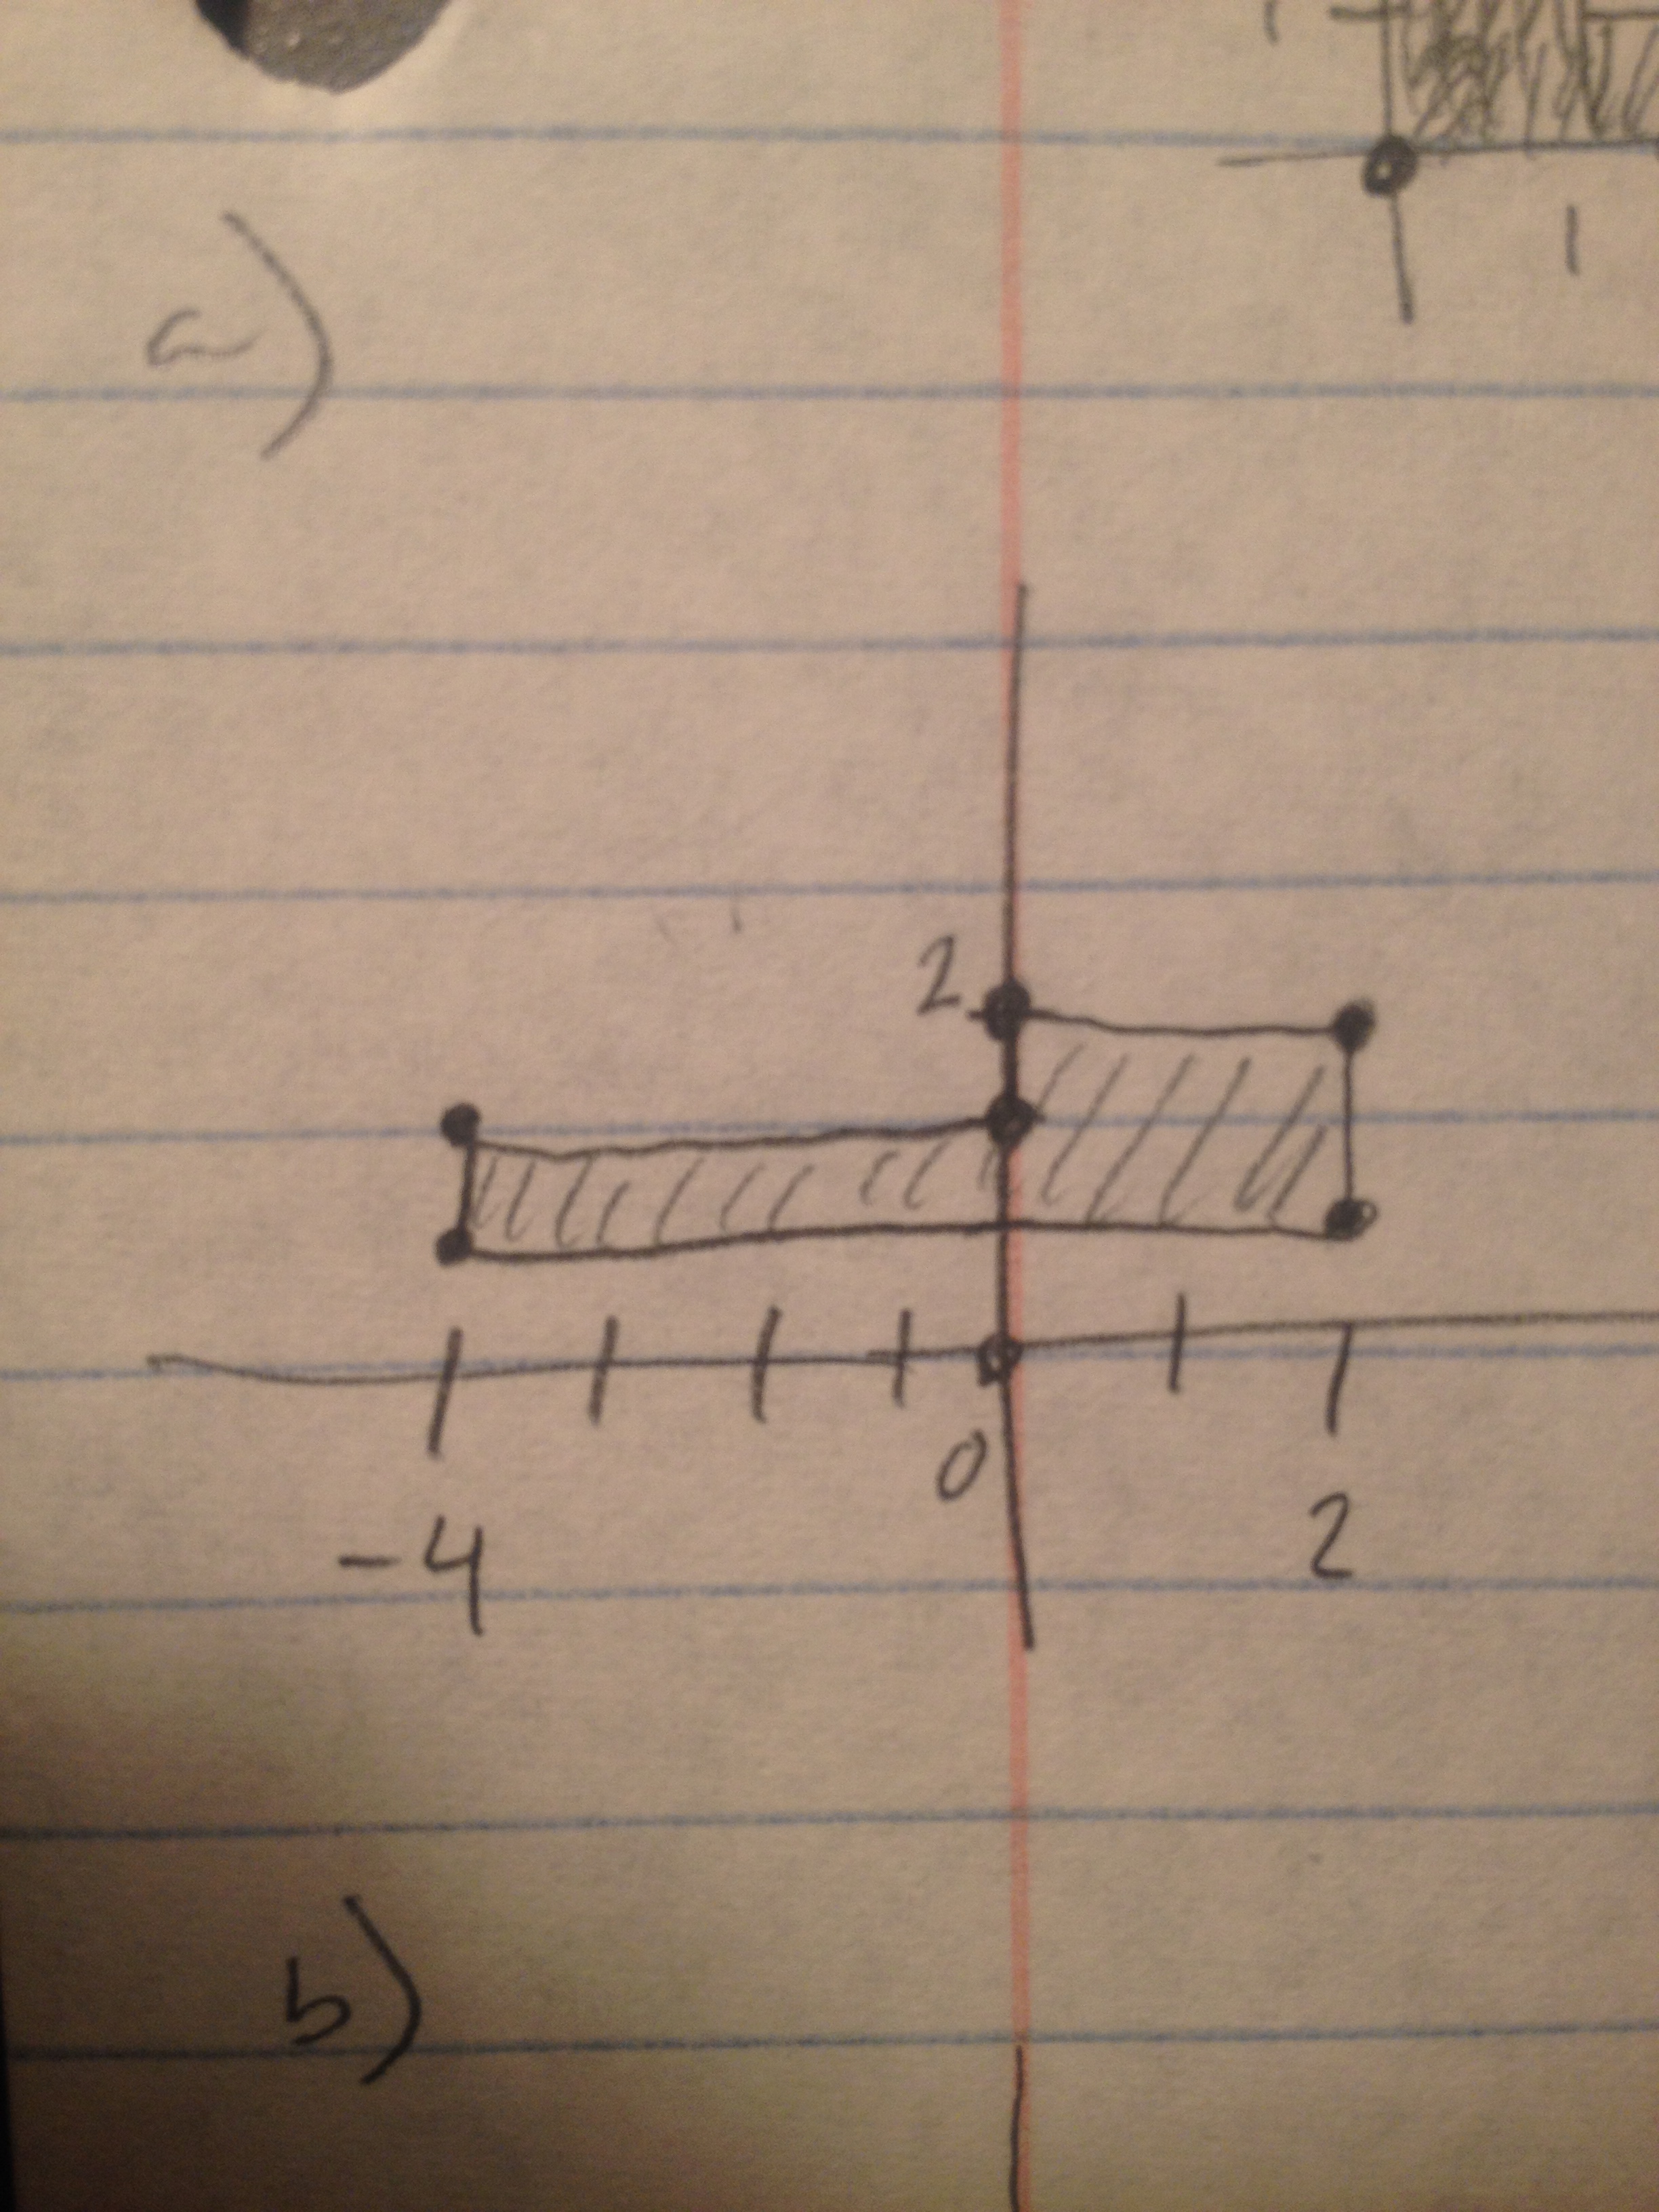 1
a)
2
0
-4 2
b)